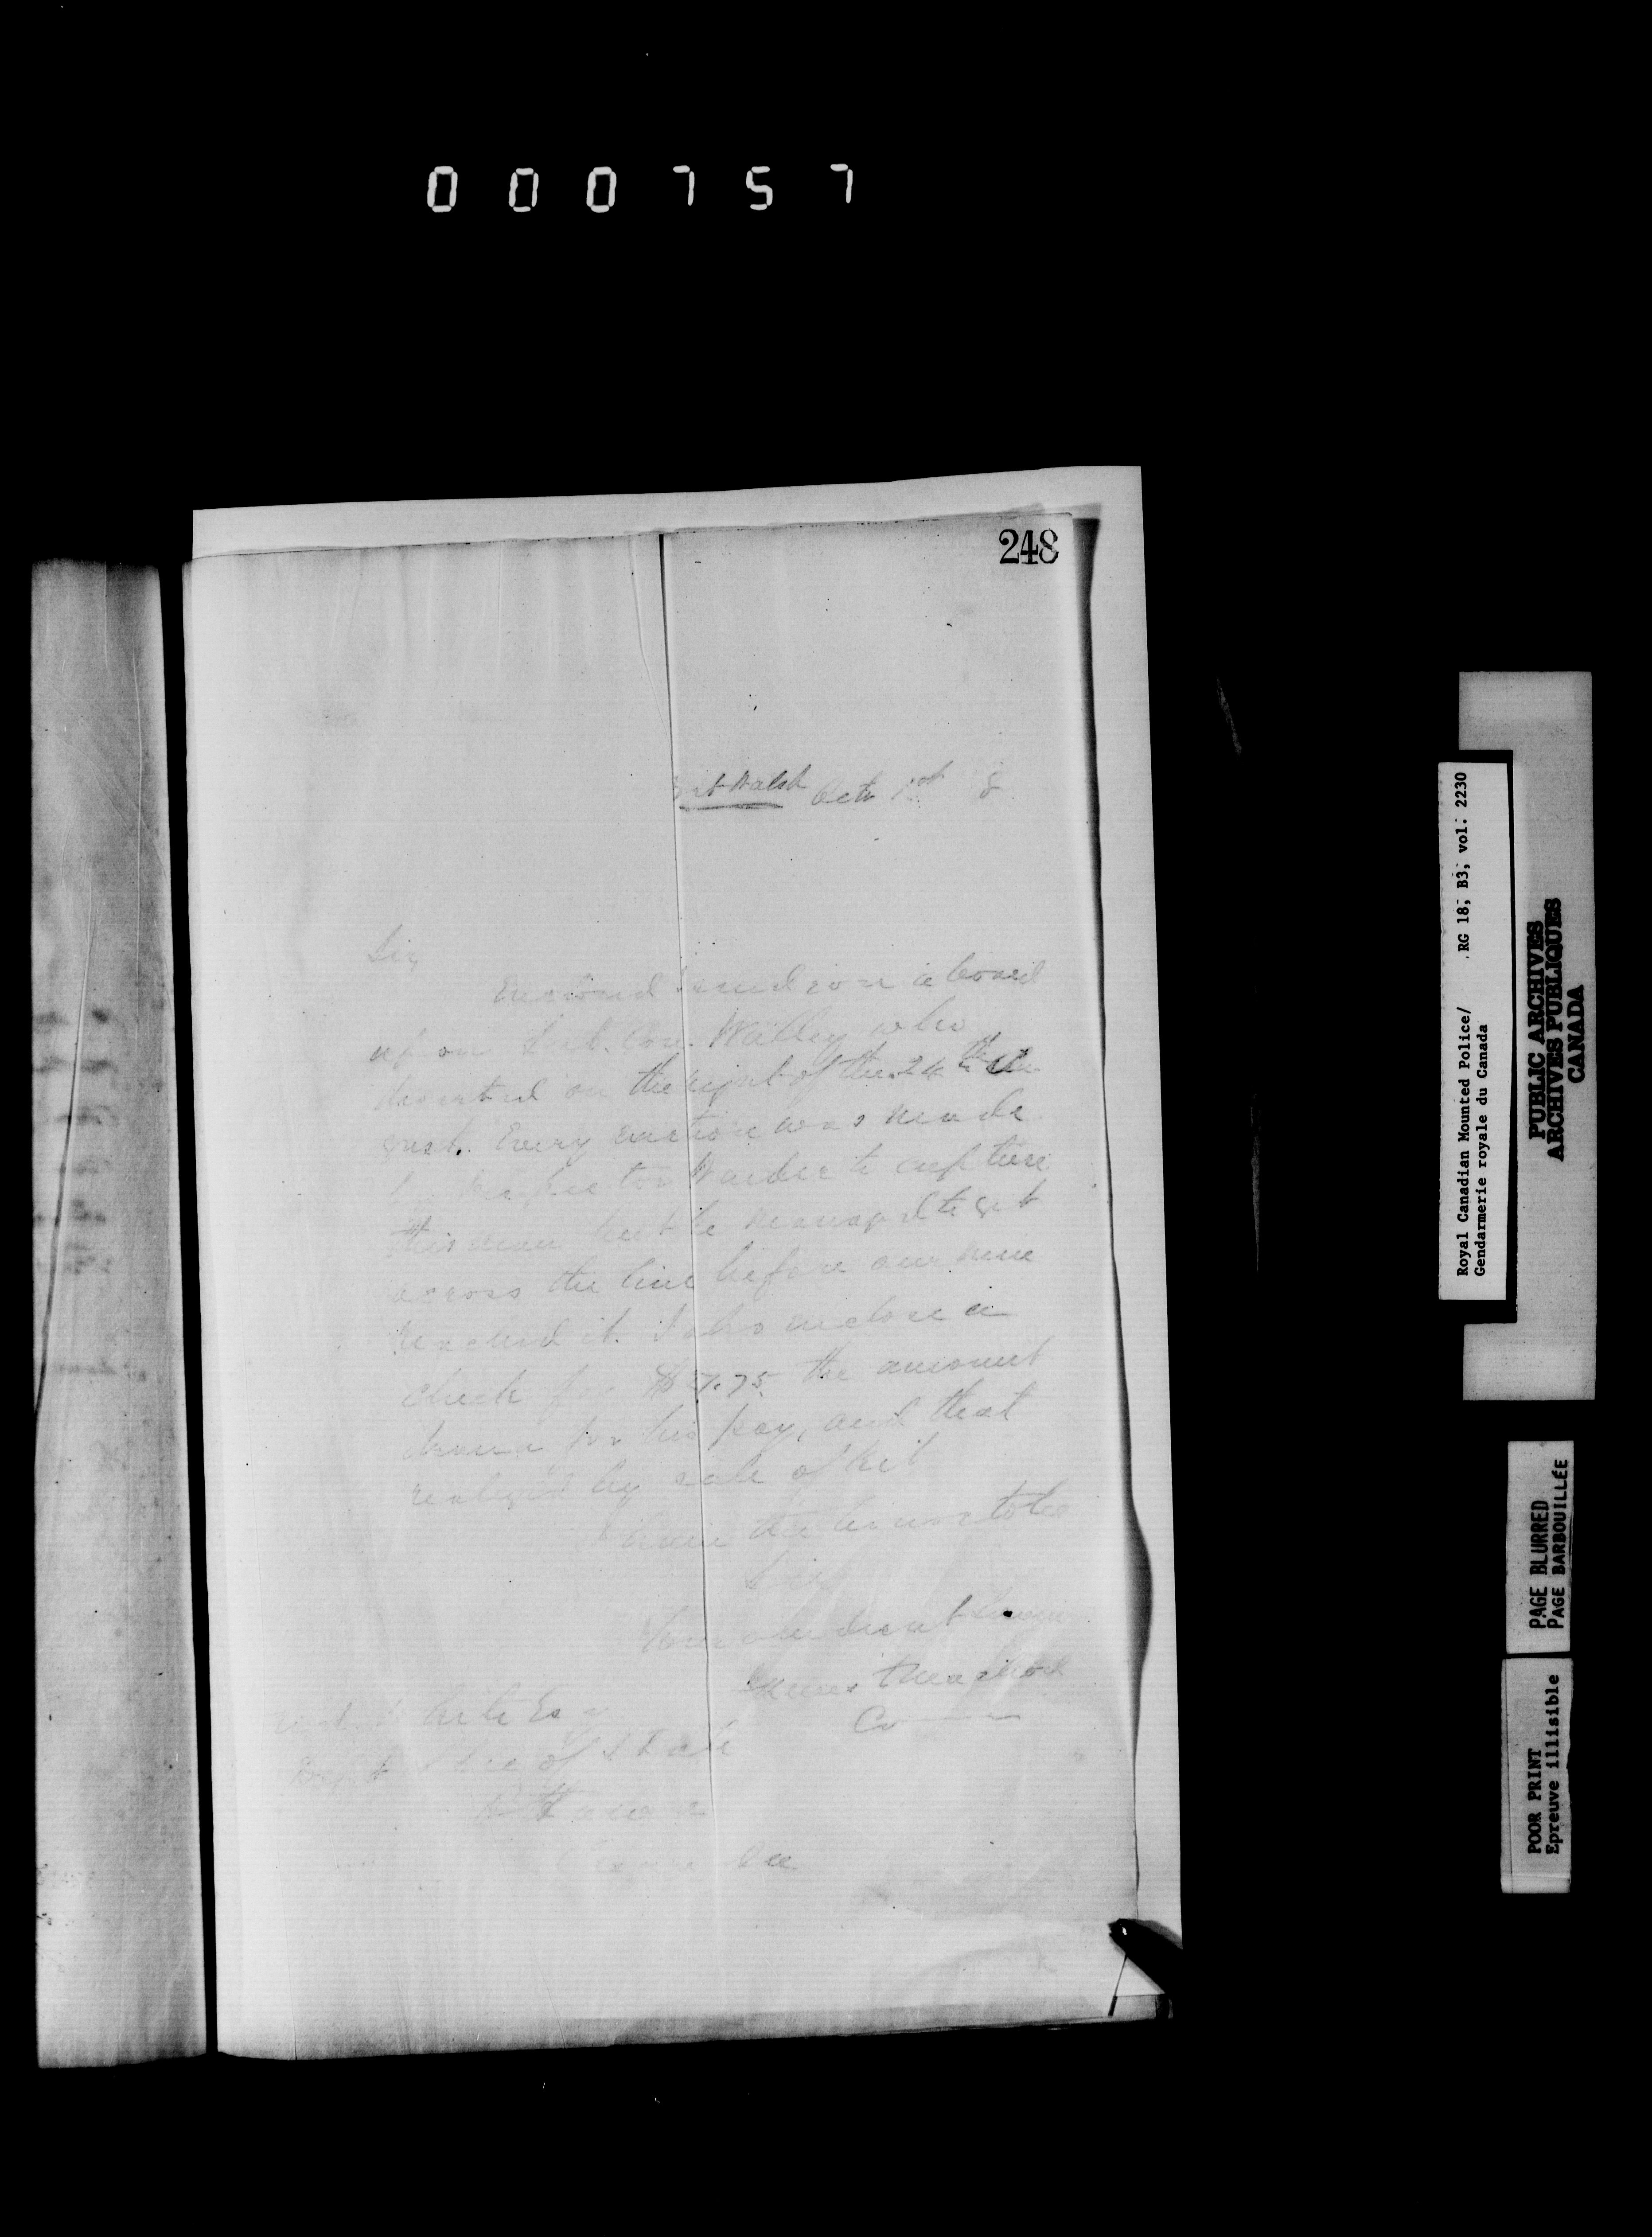 000757
248
Walsh Octr 1st 8
Sir
Enclosed I send you a board
upon Sub. Con. Walley who
deserted on the night of the 24th
Every was made
by Inspector to capture
this man but he managed to get
across the line before our men
reached it. I also enclose a
check for 7.75 the amount
drawn for his pay, and that
realized by sale of kit
I have the honor to be
Sir
Your obedient Servant
James
Co
White Esq
Dept of State
Ottawa
Canada
Royal Canadian Mounted Police/ RG 18, B3, vol. 2230
Gendarmerie royale du Canada
PUBLIC ARCHIVES
ARCHIVES PUBLIQUES
CANADA
PAGE BLURRED
PAGE BARBOUILLÉE
POOR PRINT
Epreuve illisible